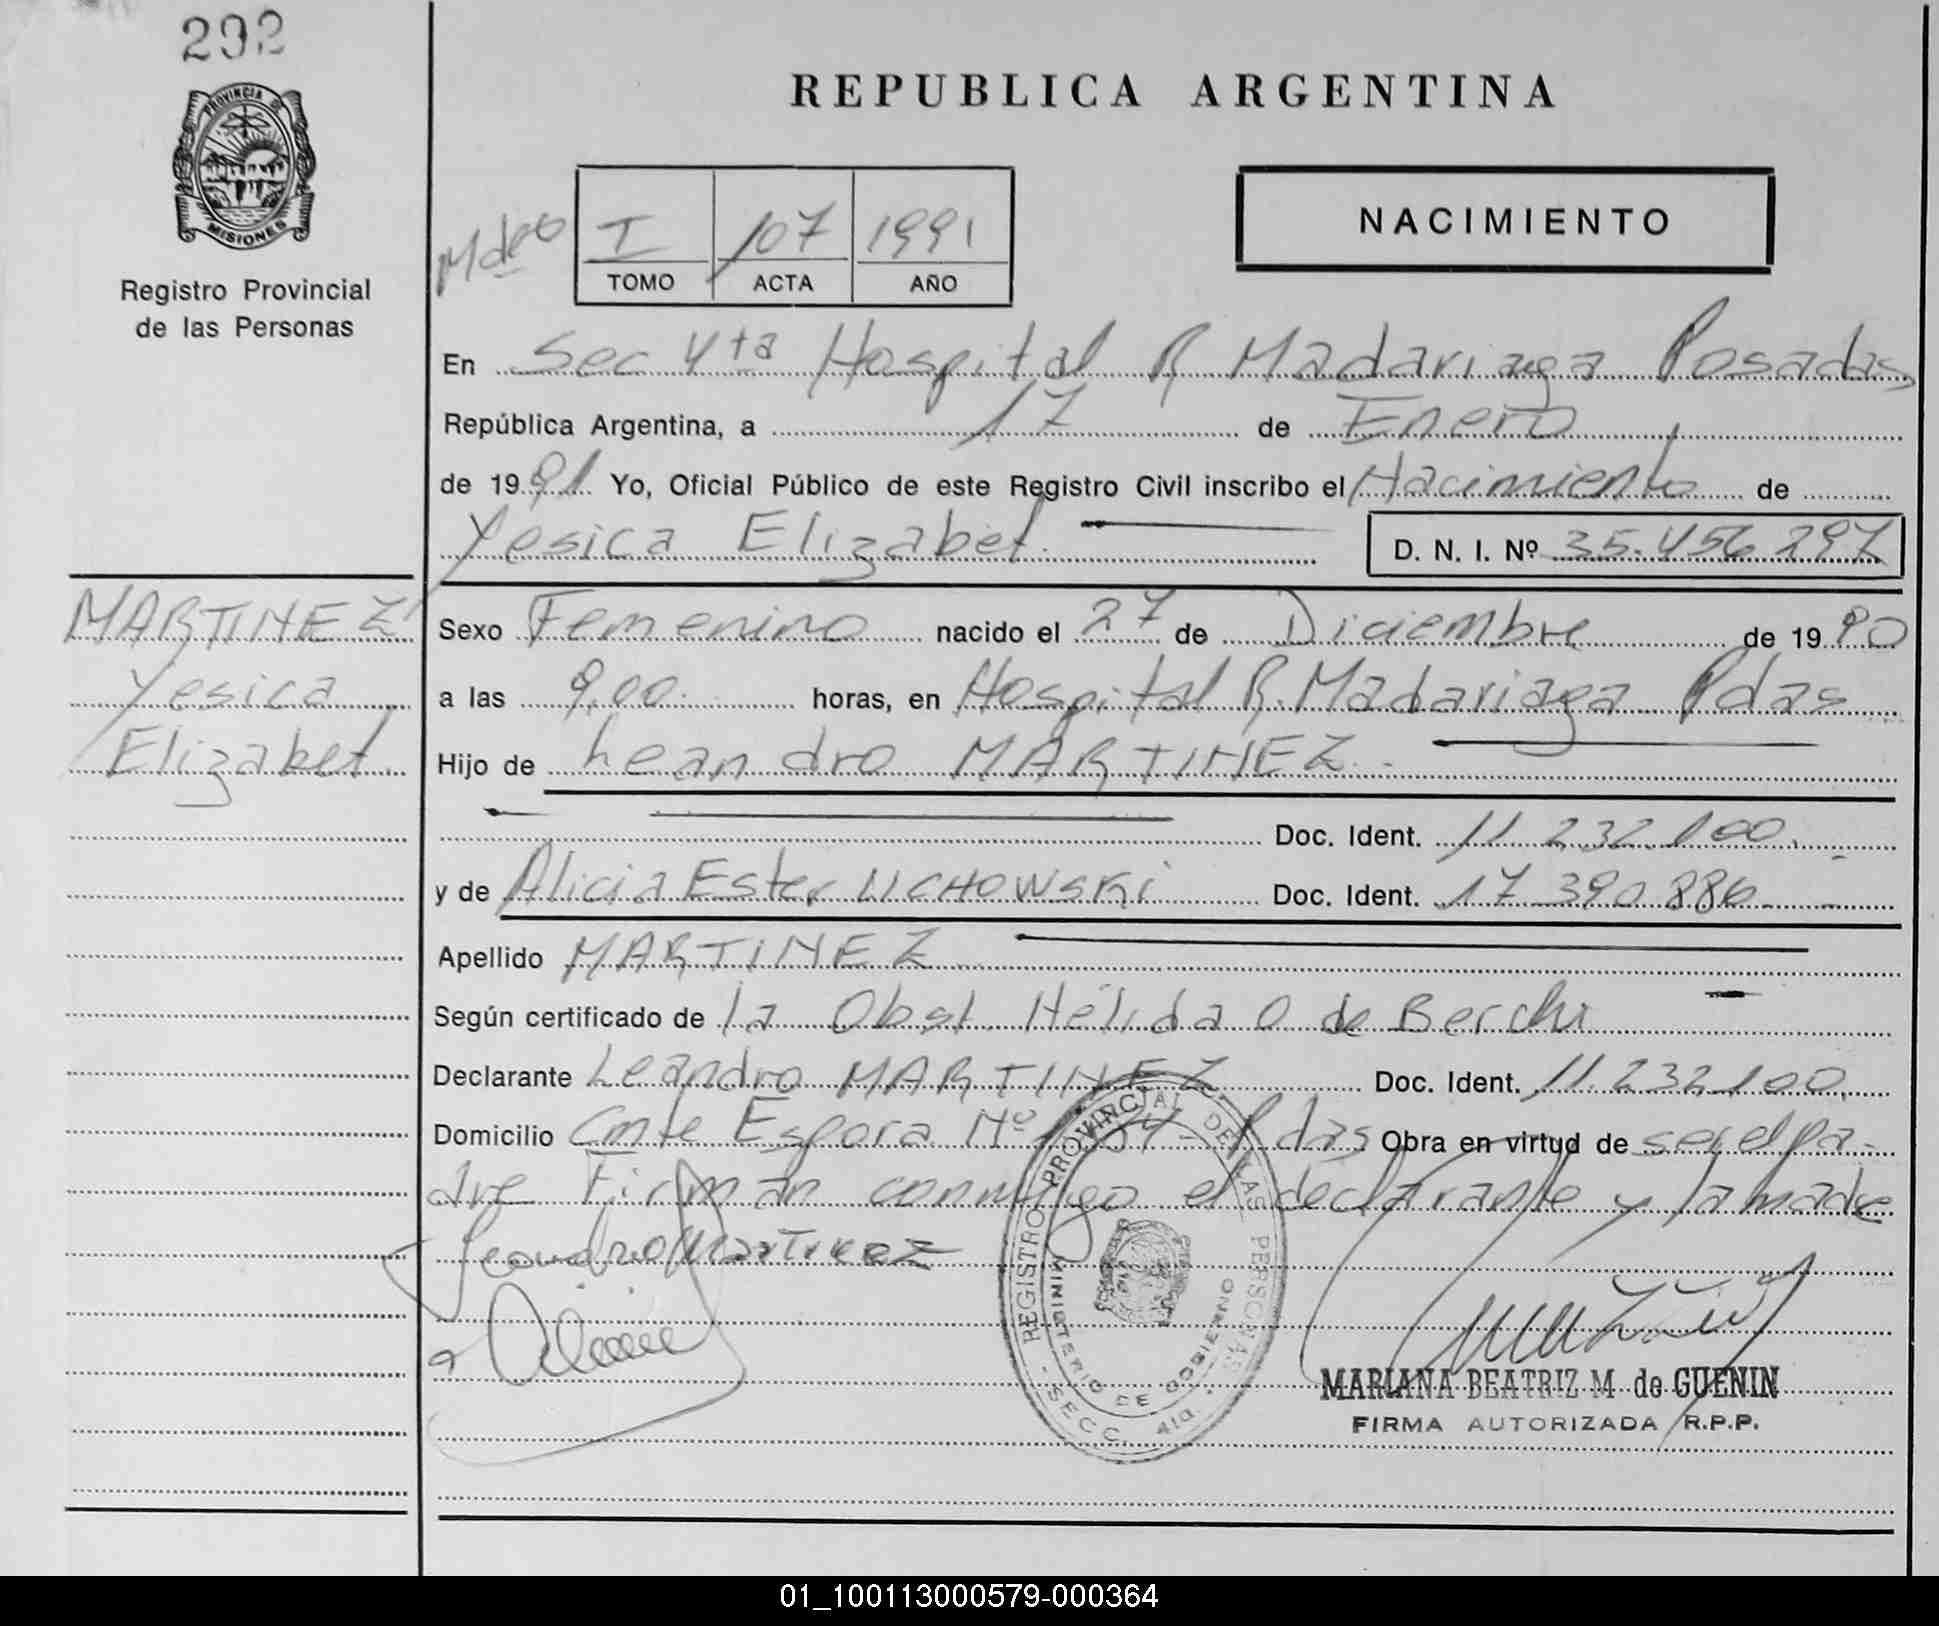 292
PROVINCIA DE
MISIONES
Registro Provincial
de las Personas
REPUBLICA ARGENTINA
I 107 1991
TOMO ACTA AÑO
NACIMIENTO
En Sec 4ta Hospital R Madariaga Posadas
República Argentina, a 17 de Enero
de 1991 Yo, Oficial Público de este Registro Civil inscribo el Nacimiento de
Yesica Elizabet
D. N. I. Nº 35.456 297
MARTINEZ
Yesica
Elizabet
Sexo Femenino nacido el 27 de Diciembre de 1990
a las 9,00 horas, en Hospital R. Madariaga Pdas
Hijo de Leandro MARTINEZ
Doc. Ident. 11.232.100
y de Alicia Ester LICHOWSKI Doc. Ident. 17 390 886
Apellido MARTINEZ
Según certificado de la Obst. Hélida O de Berchi
Declarante Leandro MARTINEZ Doc. Ident. 11.232.100
Domicilio Cmte Espora Nº Pdas Obra en virtud de ser el pa-
dre Firman conmigo el declarante y la madre
Leandro Martinez
REGISTRO PROVINCIAL DE LAS PERSONAS
MINISTERIO DE GOBIERNO
- SECC. 4ta. -
MARIANA BEATRIZ M de GUENIN
FIRMA AUTORIZADA R.P.P.
01_100113000579-000364